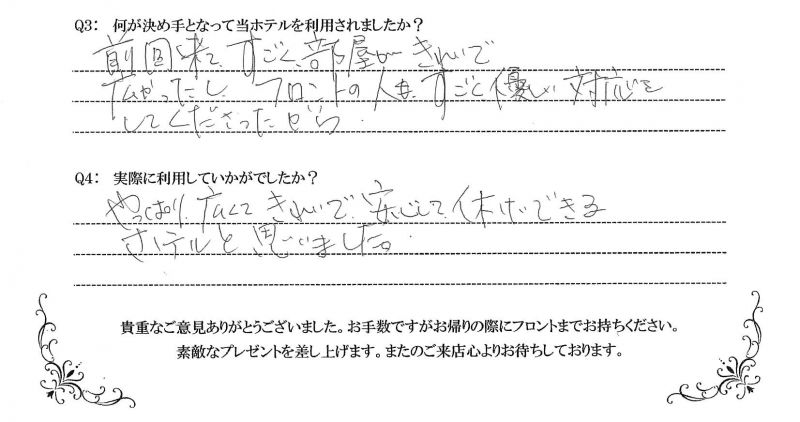 Q3: 何が決め手となって当ホテルを利用されましたか？
前回来て、すごく、部屋が きれいで
広かったし、フロントの人も、すごく優しい 対応を
してくださったから.
Q4: 実際に利用していかがでしたか？
やっぱり、広くて きれいで、安心して、休けいできる
ホテルと 思いました。
貴重なご意見ありがとうございました。お手数ですがお帰りの際にフロントまでお持ちください。
素敵なプレゼントを差し上げます。またのご来店心よりお待ちしております。